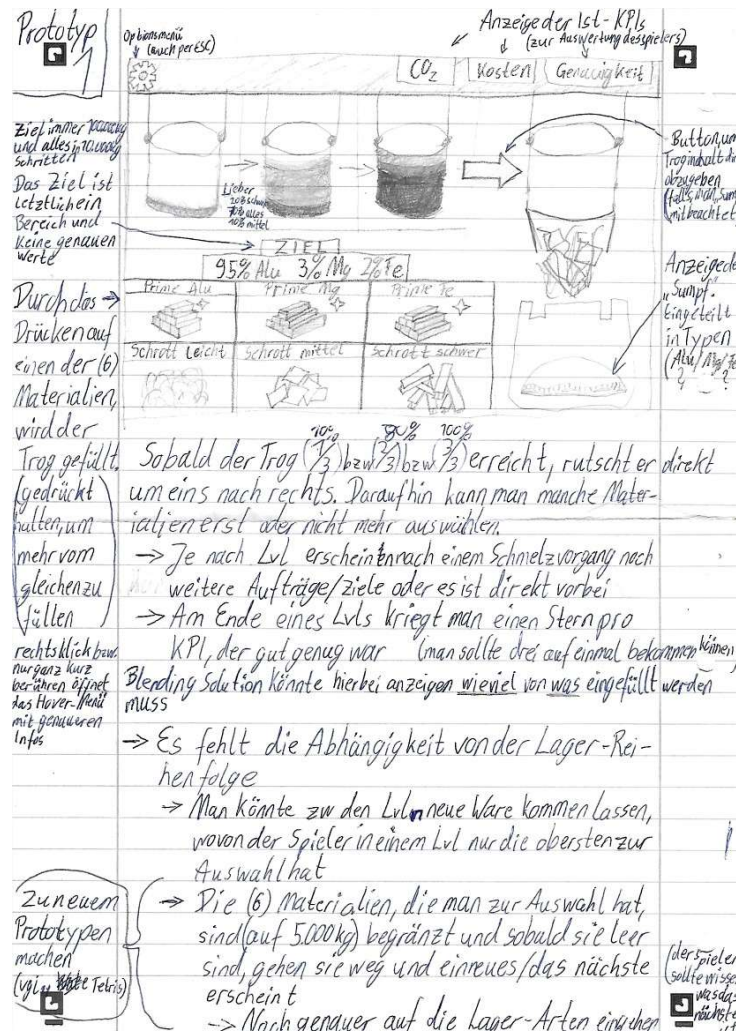 Prototyp
1
Optionsmenü
(auch per ESC)
Anzeige der Ist-KPIs
(zur Auswertung des spielers)
CO2 Kosten Genauigkeit
Ziel immer 100.000kg
und alles in 10.000kg
schritten
Das Ziel ist
letztlich ein
Bereich und
keine genauen
Werte
Lieber
20% schwer
70% alles
10% mittel
Button, um
Troginhalt
abzugeben
(falls man
mitbeachtet
ZIEL
95% Alu 3% Mg 2% Fe
Prime Alu Prime Mg Prime Fe
Schrott Leicht Schrott mittel Schrott schwer
Anzeige de
"Sumpf"
Eingeteilt
in Typen
(Alu/Mg/Fe
? ?
Durch das
Drücken auf
einen der (6)
Materialien,
wird der
Trog gefüllt.
(gedrückt
halten, um
mehr vom
gleichen zu
füllen
rechtsklick bzw.
nur ganz kurz
berühren öffnet
das Hover-Menü
mit genaueren
Infos
10% 90% 100%
Sobald der Trog (1/3) bzw (2/3) bzw (3/3) erreicht, rutscht er direkt
um eins nach rechts. Daraufhin kann man manche Mater-
ialien erst oder nicht mehr auswählen.
→ Je nach Lvl erscheinen nach einem Schmelzvorgang noch
weitere Aufträge/Ziele oder es ist direkt vorbei
→ Am Ende eines Lvls kriegt man einen Stern pro
KPI, der gut genug war (man sollte drei auf einmal bekommen können
Blending Solution könnte hierbei anzeigen wieviel von was eingefüllt werden
muss
→ Es fehlt die Abhängigkeit von der Lager-Rei-
henfolge
→ Man könnte zw den Lvln neue Ware kommen lassen,
wovon der Spieler in einem Lvl nur die obersten zur
Auswahl hat
Zu neuem
Prototypen
machen
(vgl. Tetris)
→ Die (6) Materialien, die man zur Auswahl hat,
sind (auf 5.000kg) begränzt und sobald sie leer
sind, gehen sie weg und ein neues/das nächste
erscheint
(der spieler
sollte wissen
was das
nächste
→ Noch genauer auf die Lager-Arten eingehen